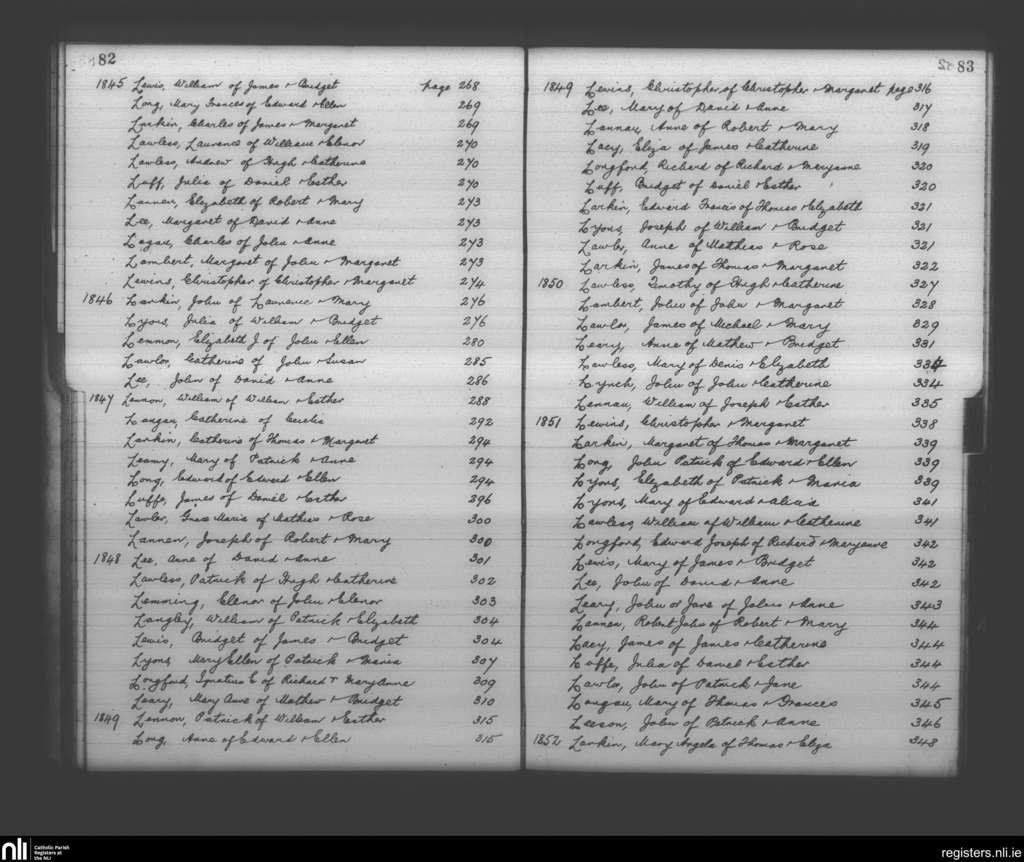 82
1845 Lewis, William of James + Bridget page 268
Long, Mary Frances of Edward + Ellen 269
Larkin, Charles of James + Margaret 269
Lawless, Laurence of William + Elenor 270
Lawless, Andrew of Hugh + Catherine 270
Luff, Julia of Daniel + Esther 270
Lannen, Elizabeth of Robert + Mary 273
Lee, Margaret of David + Anne 273
Logan, Charles of John + Anne 273
Lambert, Margaret of John + Margaret 273
Lewins, Christopher of Christopher + Margaret 274
1846 Larkin, John of Laurence + Mary 276
Lyons, Julia of William + Bridget 276
Lemmon, Elizabeth J. of John + Ellen 280
Lawlor, Catherine of John + Susan 285
Lee, John of David + Anne 286
1847 Lennon, William of William + Esther 288
Langan, Catherine of Cecilia 292
Larkin, Catherine of Thomas + Margaret 294
Leamy, Mary of Patrick + Anne 294
Long, Edward of Edward + Ellen 294
Luffe, James of Daniel + Esther 296
Lawler, Grace Maria of Mathias + Rose 300
Lannen, Joseph of Robert + Mary 300
1848 Lee, Anne of David + Anne 301
Lawless, Patrick of Hugh + Catherine 302
Lemming, Elenor of John + Elenor 303
Langley, William of Patrick + Elizabeth 304
Lewis, Bridget of James + Bridget 304
Lyons, Mary Ellen of Patrick + Maria 307
Longford, Ignatius E of Richard + Mary Anne 309
Leary, Mary Anne of Mathew + Bridget 310
1849 Lennon, Patrick of William + Esther 315
Long, Anne of Edward + Ellen 315
83
1849 Lewins, Christopher of Christopher + Margaret page 316
Lee, Mary of David + Anne 317
Lannan, Anne of Robert + Mary 318
Lacy, Eliza of James + Catherine 319
Longford, Richard of Richard + Maryanne 320
Luff, Bridget of Daniel + Esther 320
Larkin, Edward Francis of Thomas + Elizabeth 321
Lyons, Joseph of William + Bridget 321
Lawlor, Anne of Mathias + Rose 321
Larkin, James of Thomas + Margaret 322
1850 Lawless, Timothy of Hugh + Catherine 327
Lambert, John of John + Margaret 328
Lawlor, James of Michael + Mary 329
Leary, Anne of Mathew + Bridget 331
Lawless, Mary of Denis + Elizabeth 334
Lynch, John of John + Catherine 334
Lennan, William of Joseph + Esther 335
1851 Lewins, Christopher + Margaret 338
Larkin, Margaret of Thomas + Margaret 339
Long, John Patrick of Edward + Ellen 339
Lyons, Elizabeth of Patrick + Maria 339
Lyons, Mary of Edward + Alicia 341
Lawless, William of William + Catherine 341
Longford, Edward Joseph of Richard + Maryanne 342
Lewis, Mary of James + Bridget 342
Lee, John of David + Anne 342
Leary, John or Jane of John + Anne 343
Lannen, Robert John of Robert + Mary 344
Lacy, James of James + Catherine 344
Luffe, Julia of Daniel + Esther 344
Lawlor, John of Patrick + Jane 344
Langan, Mary of Thomas + Frances 345
Leeson, John of Patrick + Anne 346
1852 Larkin, Mary Angela of Thomas + Eliza 348
nli Catholic Parish
Registers at
the NLI
registers.nli.ie